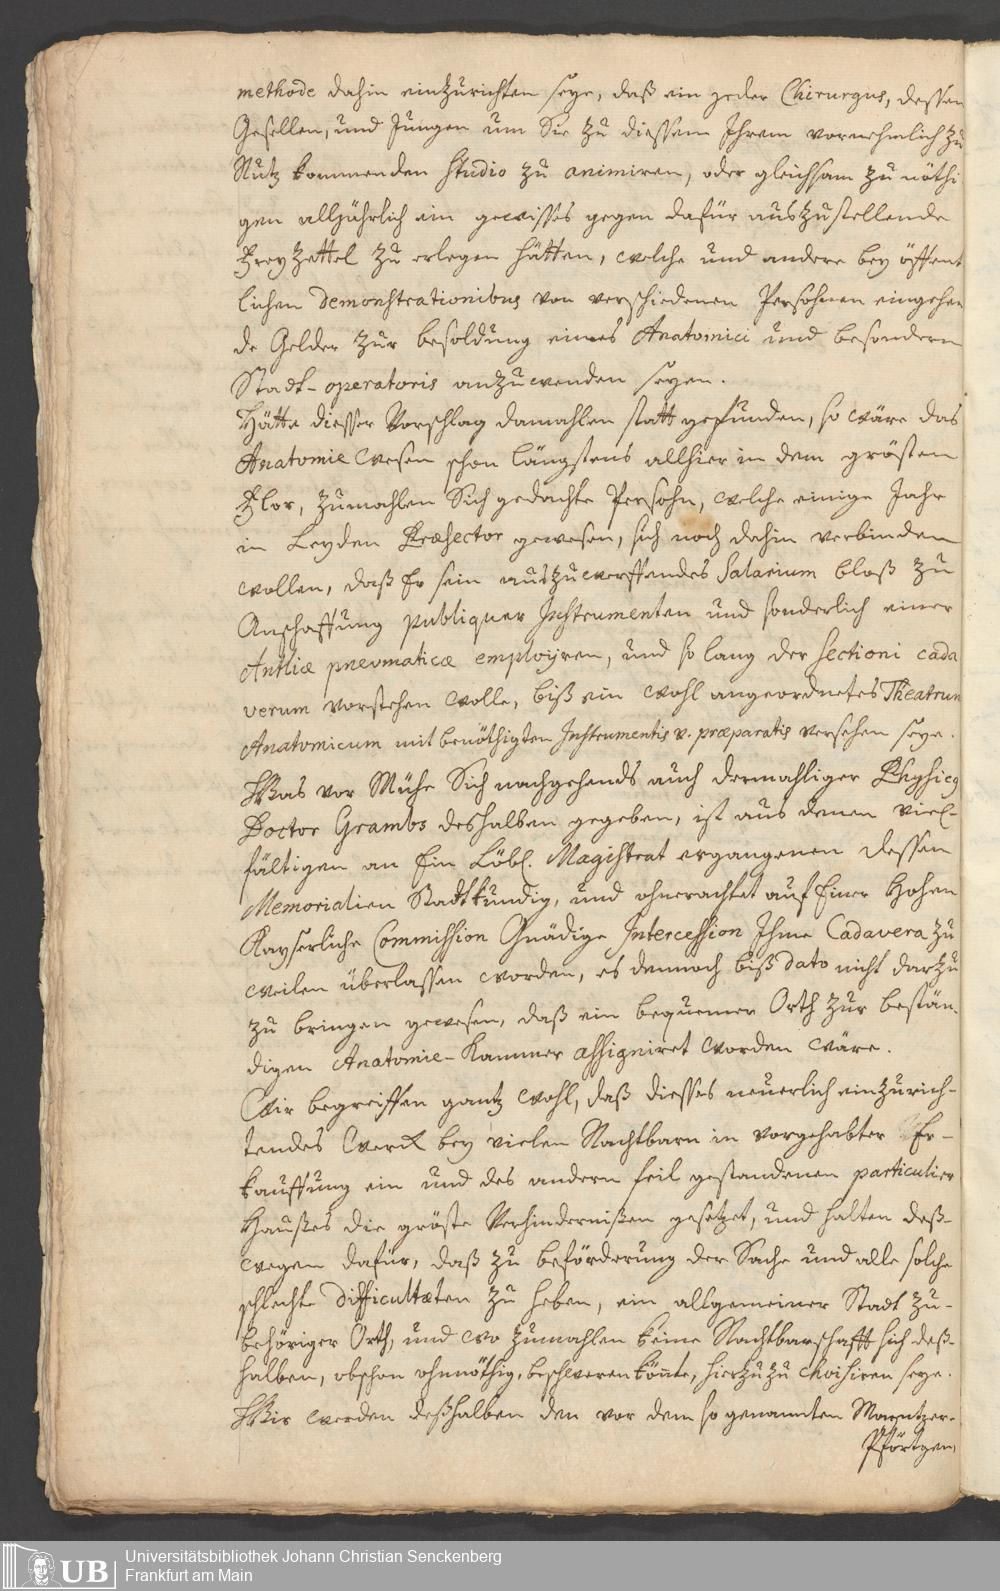 methode dahin einzurichten seye, daß ein jeder Chirurgus, dessen
Gesellen, und Jungen um Sie zu diessem Ihrem vornehmlich zu
Nutz kommenden Studio zu animiren, oder gleichsam zu nöthi
gen alljährlich ein gewisses gegen dafür auszustellende
Freyzettel zu erlegen hätten, welche und andere bey öffent
lichen demonstrationibus von verschiedenen Persohnen eingehen
de Gelder zur besoldung eines Anatomici und besondern
Stadt-operatoris anzuwenden seyen.
Hätte diesser Vorschlag damahlen statt gefunden, so wäre das
Anatomie Wesen schon längstens allhier in dem grösten
Flor, zumahlen Sich gedachte Persohn, welche einige Jahr
in Leyden Prosector gewesen, sich noch dahin verbinden
wollen, daß Er sein auszuwerffendes Salarium bloß zu
Anschaffung publiquer Instrumenten und sonderlich einer
Antliæ pnevmaticæ employren, und so lang der sectioni cada
verum vorstehen wolle, biß ein wohl angeordnetes Theatrum
Anatomicum mit benöthigten Instrumentis v. præparatis versehen seye.
Was vor Mühe Sich nachgehends auch dermahliger Physicus
Doctor Grambs deshalben gegeben, ist aus denen viel-
fältigen an Ein Löbl. Magistrat ergangenen dessen
Memorialien Stadtkundig, und ohnerachtet auf Einer Hohen
Kayserliche Commission Gnädige Intercession Ihme Cadavera zu
weilen überlassen worden, es dennoch biß dato nicht darzu
zu bringen gewesen, daß ein bequemer Orth zur bestän-
digen Anatomie-Kammer assigniret worden wäre.
Wir begreiffen gantz wohl, daß diesses neuerlich einzurich-
tendes Werck bey vielen Nachtbarn in vorgehabter Er-
kauffung ein und des andern feil gestandenen particulier
Haußes die gröste Verhindernißen gesetzet, und halten deß-
wegen dafür, daß zu beförderung der Sache und alle solche
schlechte difficultæten zu heben, ein allgemeiner Stadt zu-
behöriger Orth, und wo zumahlen keine Nachtbarschafft sich deß-
halben, obschon ohnnöthig, beschweren könte, hierzu zu choisiren seye.
Wir werden deßhalben den vor dem so genannten Mayntzer-
Pförtgen,
Universitätsbibliothek Johann Christian Senckenberg
UB Frankfurt am Main